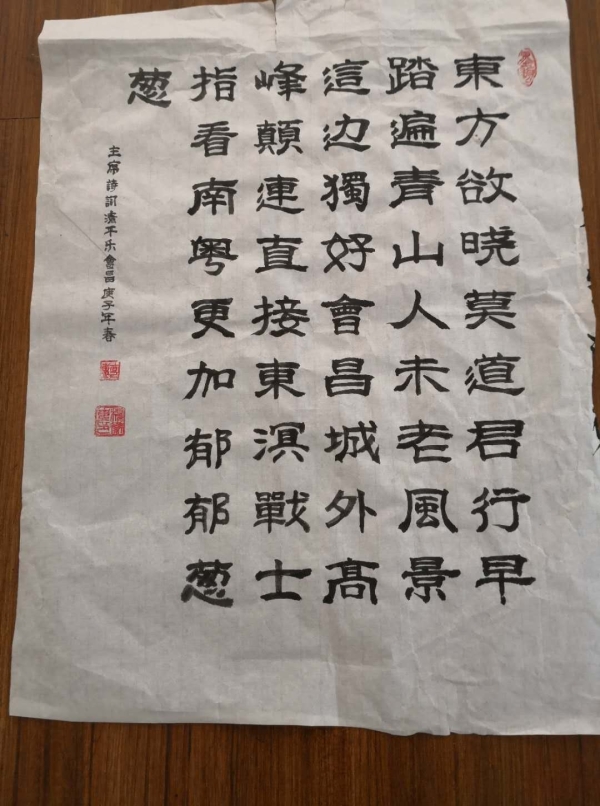 東方欲晓莫道君行早
踏遍青山人未老風景
這边獨好會昌城外高
峰顛連直接東溟戰士
指看南粤更加郁郁葱
葱
主席詩詞清平乐會昌庚子年春